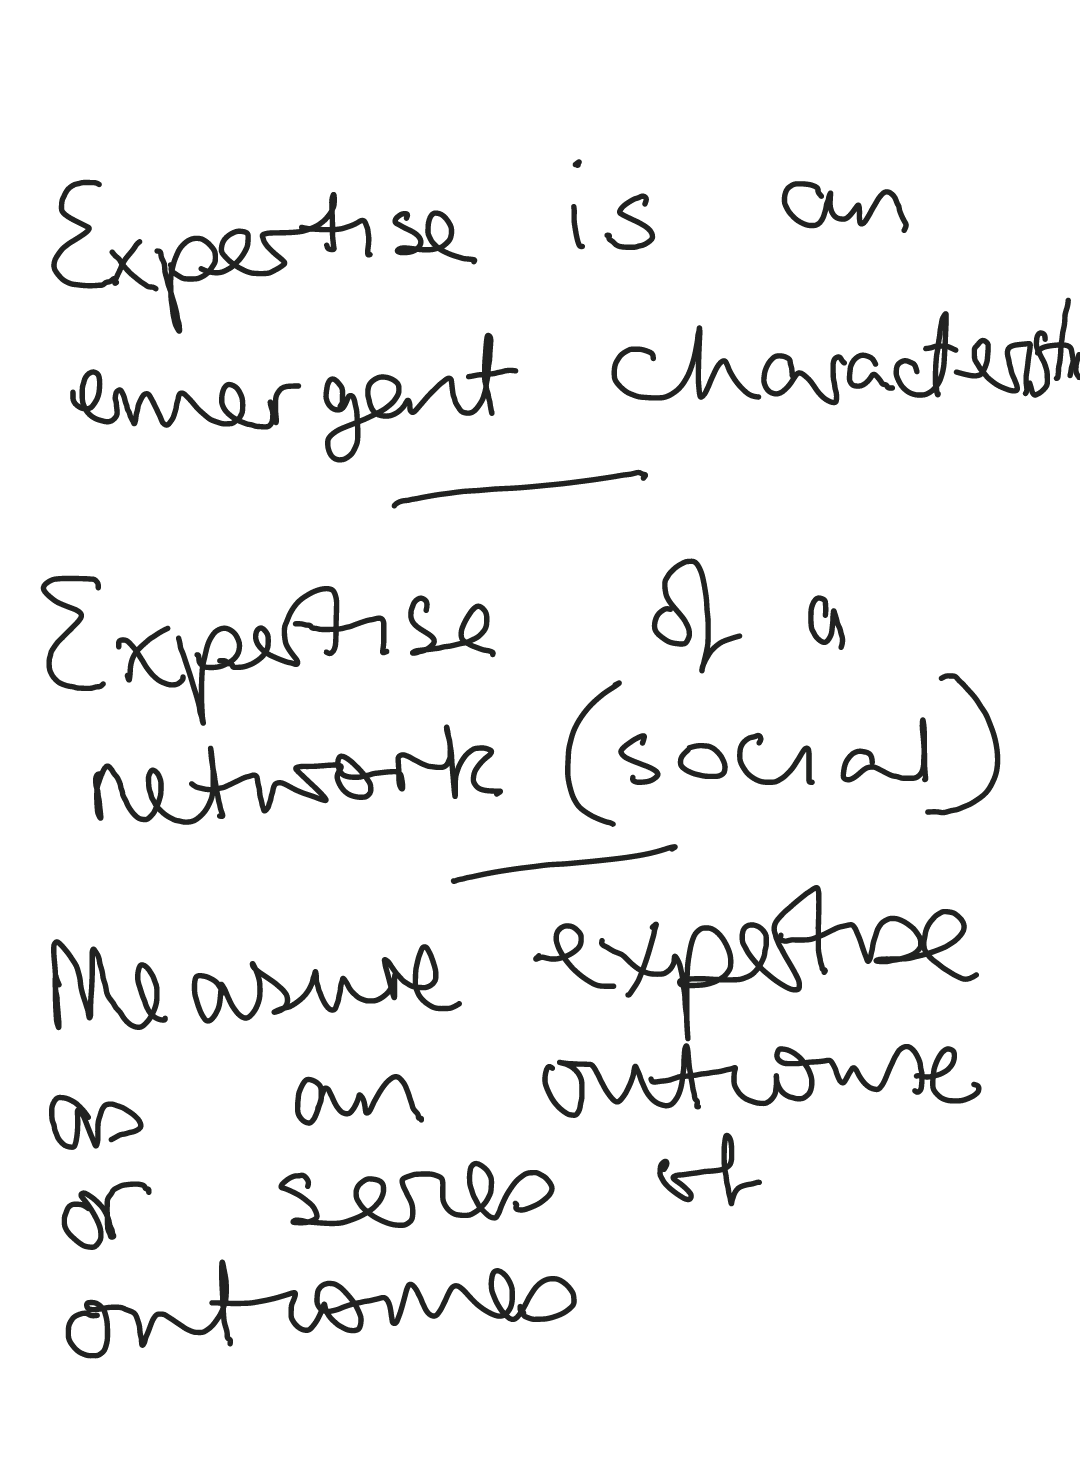 Expertise is an
emergent characterist
Expertise of a
network (social)
Measure expertise
as an outcome
or series of
outcomes